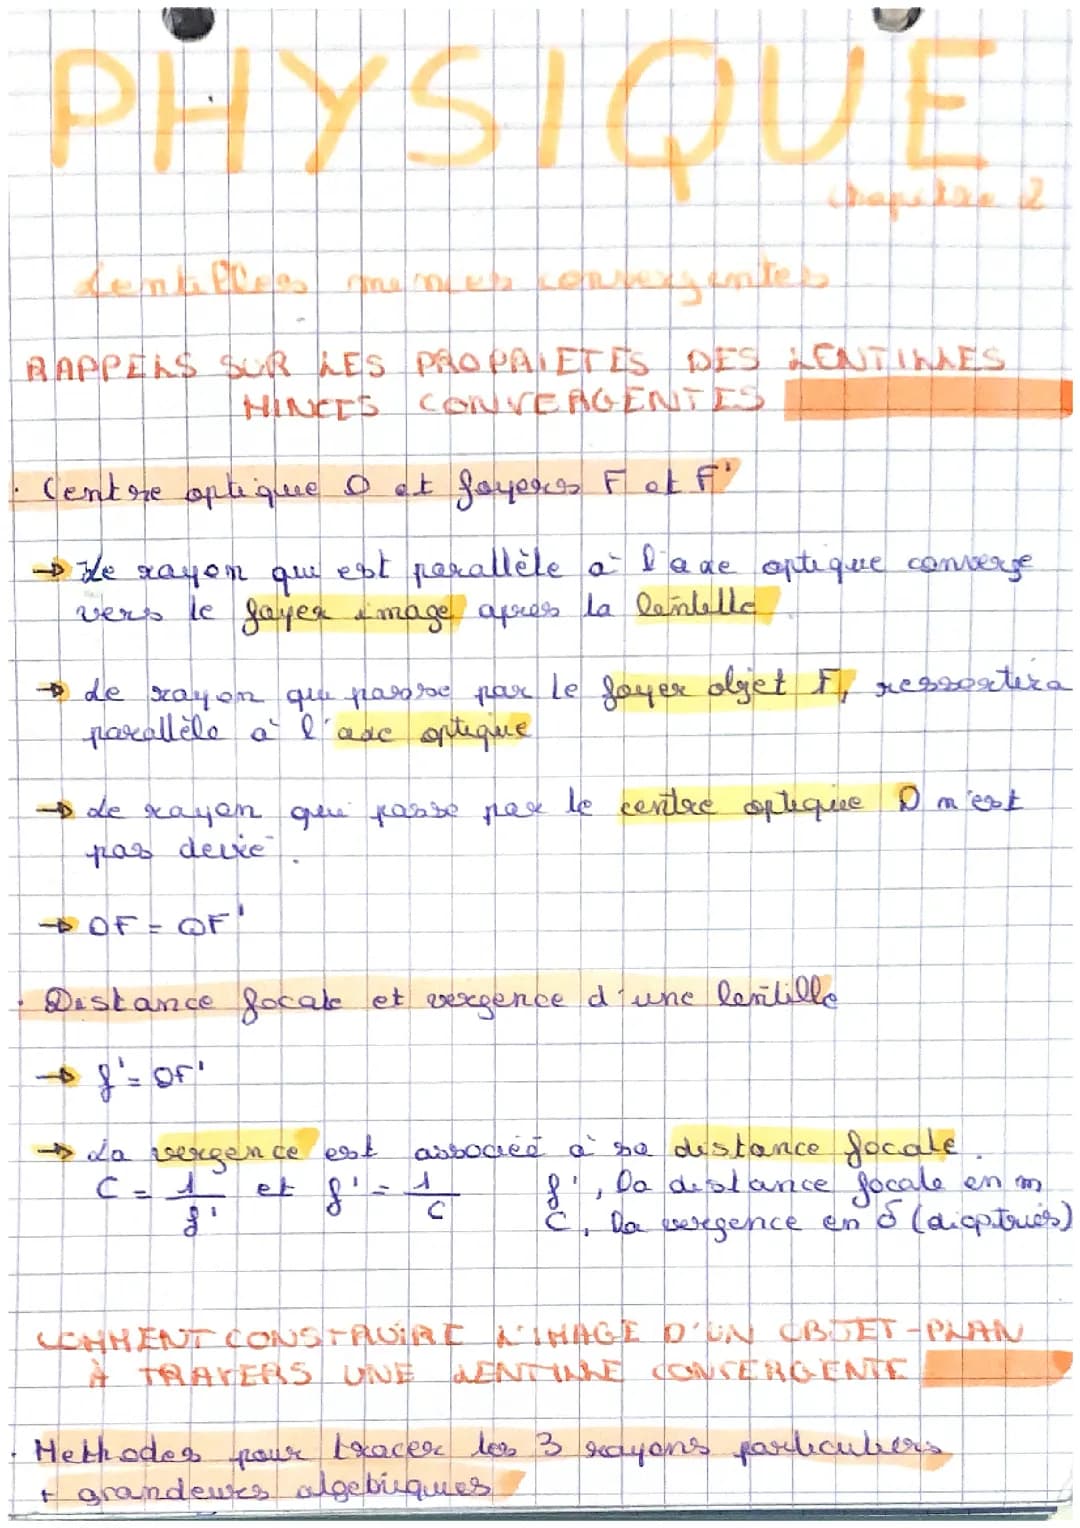 PHYSIQUE
Chapitre 2
Lentilles minces convergentes
RAPPELS SUR LES PROPRIETES DES LENTILLES
MINCES CONVERGENTES
• Centre optique O et foyers F et F'
→ Le rayon qui est parallèle à l'axe optique converge
vers le foyer image apres la lentille.
→ Le rayon qui passe par le foyer objet F, ressortira
parallèle à l'axe optique
→ Le rayon qui passe par le centre optique O n'est
pas devié.
→ OF = OF'
• Distance focale et vergence d'une lentille
→ f' = OF'
→ La vergence est associée à sa distance focale.
C = 1/f' et f' = 1/C f', la distance focale en m
C, la vergence en δ (dioptries)
COMMENT CONSTRUIRE L'IMAGE D'UN OBJET-PLAN
À TRAVERS UNE LENTILLE CONVERGENTE
• Methodes pour tracer les 3 rayons particuliers
+ grandeurs algebriques